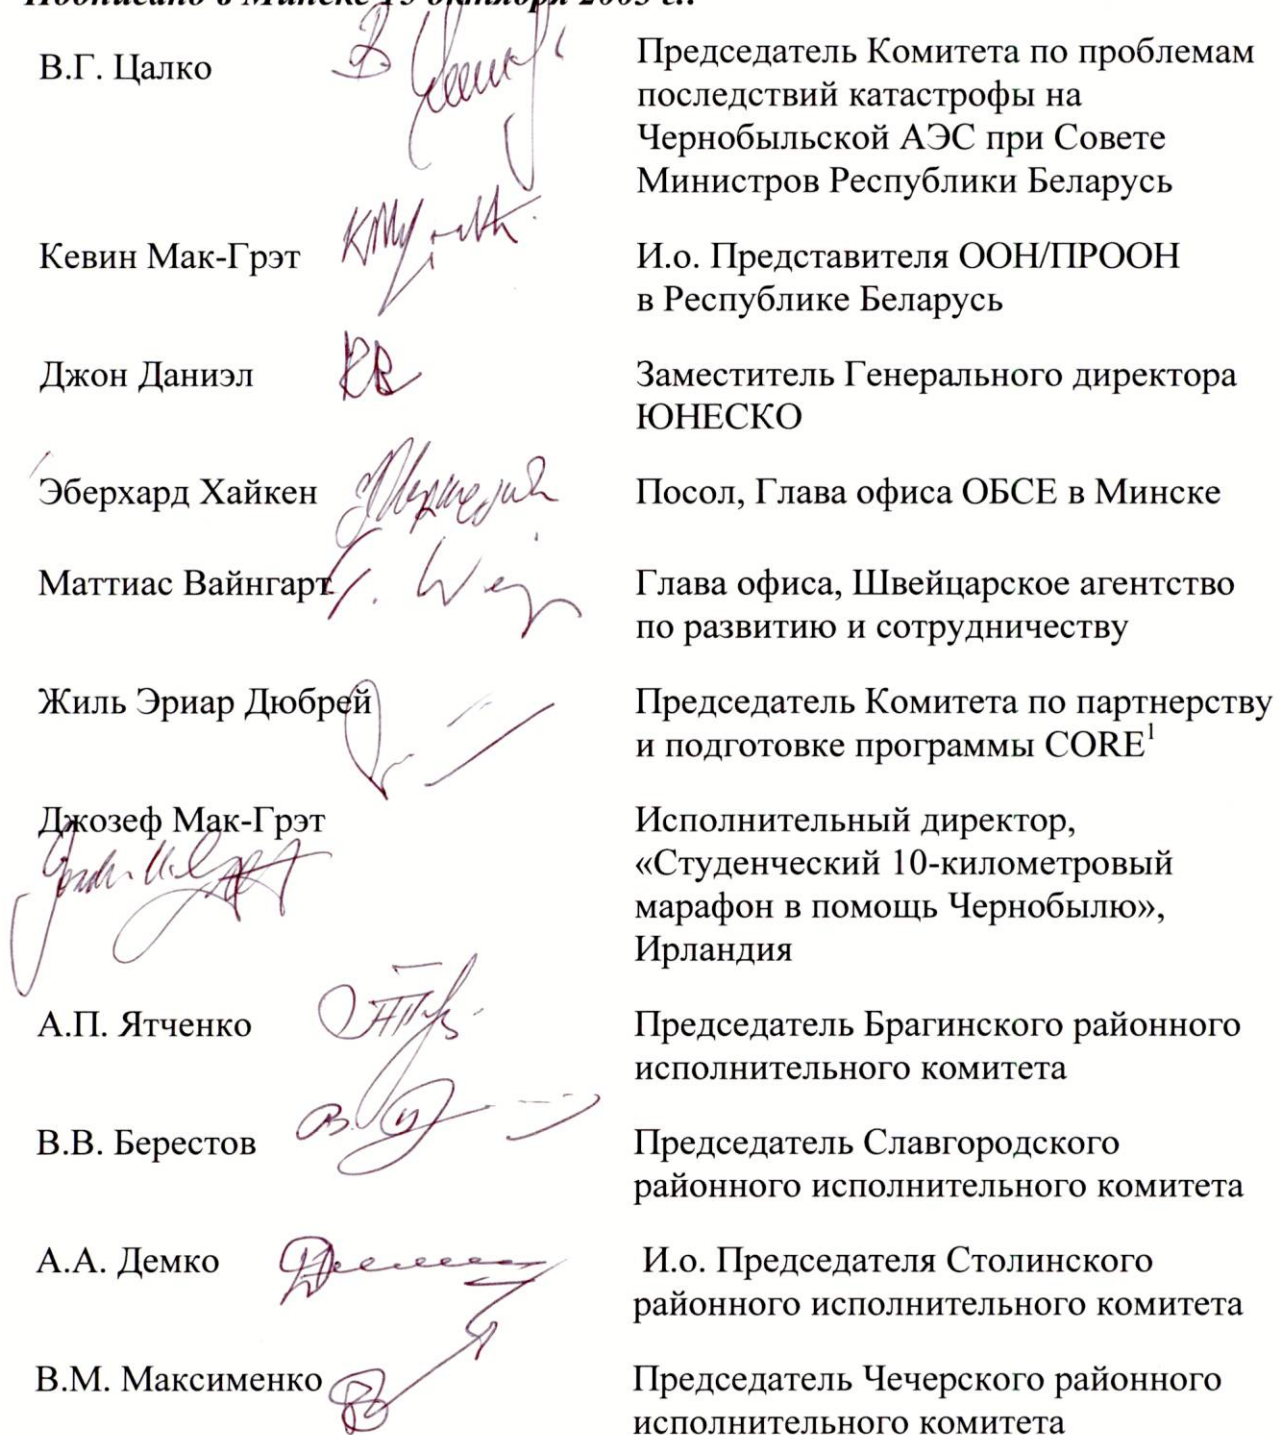 Подписано в Минске 15 октября 2003 г.:
В.Г. Цалко
Председатель Комитета по проблемам
последствий катастрофы на
Чернобыльской АЭС при Совете
Министров Республики Беларусь
Кевин Мак-Грэт
И.о. Представителя ООН/ПРООН
в Республике Беларусь
Джон Даниэл
Заместитель Генерального директора
ЮНЕСКО
Эберхард Хайкен
Посол, Глава офиса ОБСЕ в Минске
Маттиас Вайнгарт
Глава офиса, Швейцарское агентство
по развитию и сотрудничеству
Жиль Эриар Дюбрей
Председатель Комитета по партнерству
и подготовке программы CORE¹
Джозеф Мак-Грэт
Исполнительный директор,
«Студенческий 10-километровый
марафон в помощь Чернобылю»,
Ирландия
А.П. Ятченко
Председатель Брагинского районного
исполнительного комитета
В.В. Берестов
Председатель Славгородского
районного исполнительного комитета
А.А. Демко
И.о. Председателя Столинского
районного исполнительного комитета
В.М. Максименко
Председатель Чечерского районного
исполнительного комитета